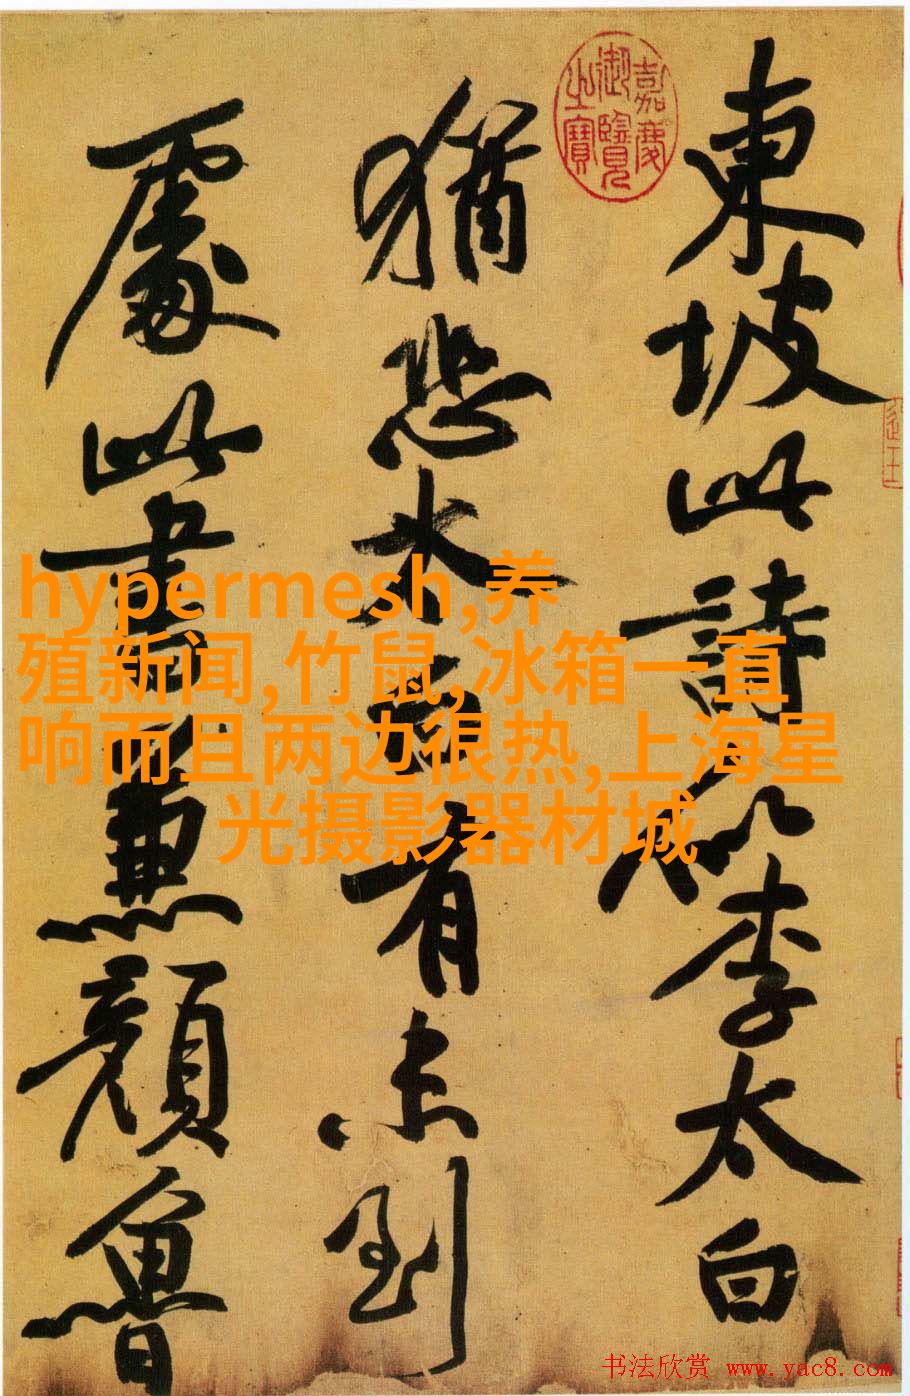 東坡此詩似李太白
猶恐太白有未到
處此書兼顏魯
嘉慶
御覽
之寶
hypermesh,养
殖新闻,竹鼠,冰箱一直
响而且两边很热,上海星
光摄影器材城
书法欣赏 www.yac8.com